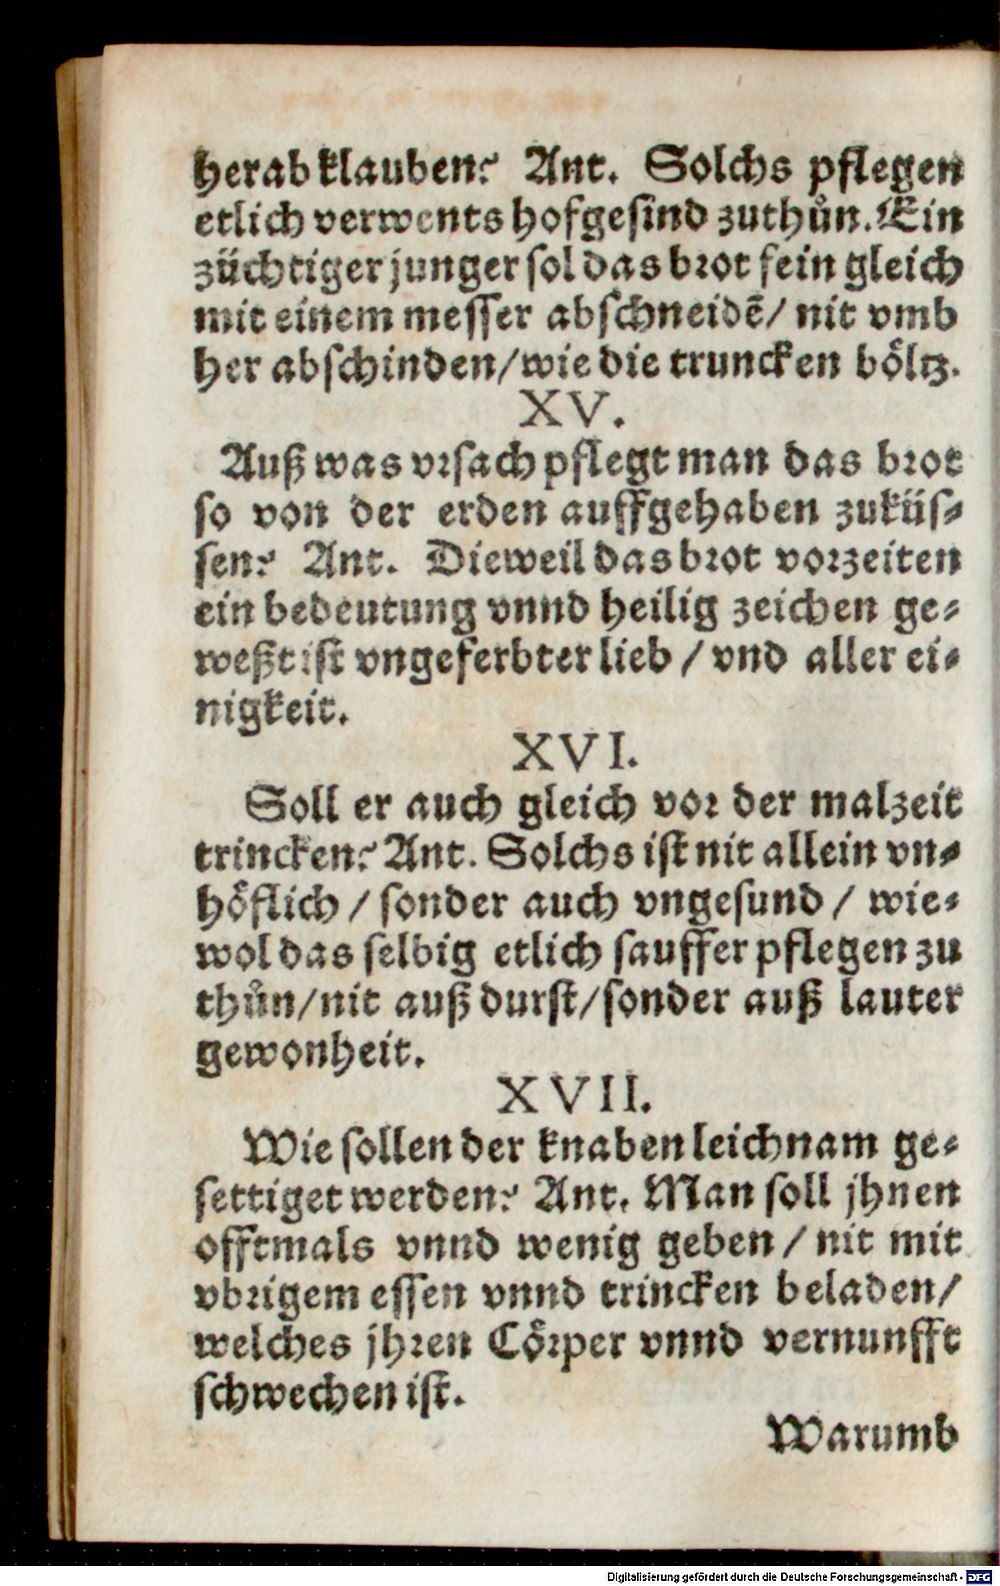 herab klauben? Ant. Solchs pflegen
etlich verwents hofgesind zuthůn. Ein
züchtiger junger sol das brot fein gleich
mit einem messer abschneidẽ/ nit vmb
her abschinden/ wie die truncken böltz.
XV.
Auß was vrsach pflegt man das brot
so von der erden auffgehaben zuküs⸗
sen? Ant. Dieweil das brot vorzeiten
ein bedeutung vnnd heilig zeichen ge⸗
weßt ist vngeferbter lieb / vnd aller ei⸗
nigkeit.
XVI.
Soll er auch gleich vor der malzeit
trincken? Ant. Solchs ist nit allein vn⸗
höflich / sonder auch vngesund / wie⸗
wol das selbig etlich sauffer pflegen zu
thůn/ nit auß durst/ sonder auß lauter
gewonheit.
XVII.
Wie sollen der knaben leichnam ge⸗
settiget werden? Ant. Man soll jhnen
offtmals vnnd wenig geben / nit mit
vbrigem essen vnnd trincken beladen/
welches jhren Cörper vnnd vernunfft
schwechen ist.
Warumb
Digitalisierung gefördert durch die Deutsche Forschungsgemeinschaft - DFG